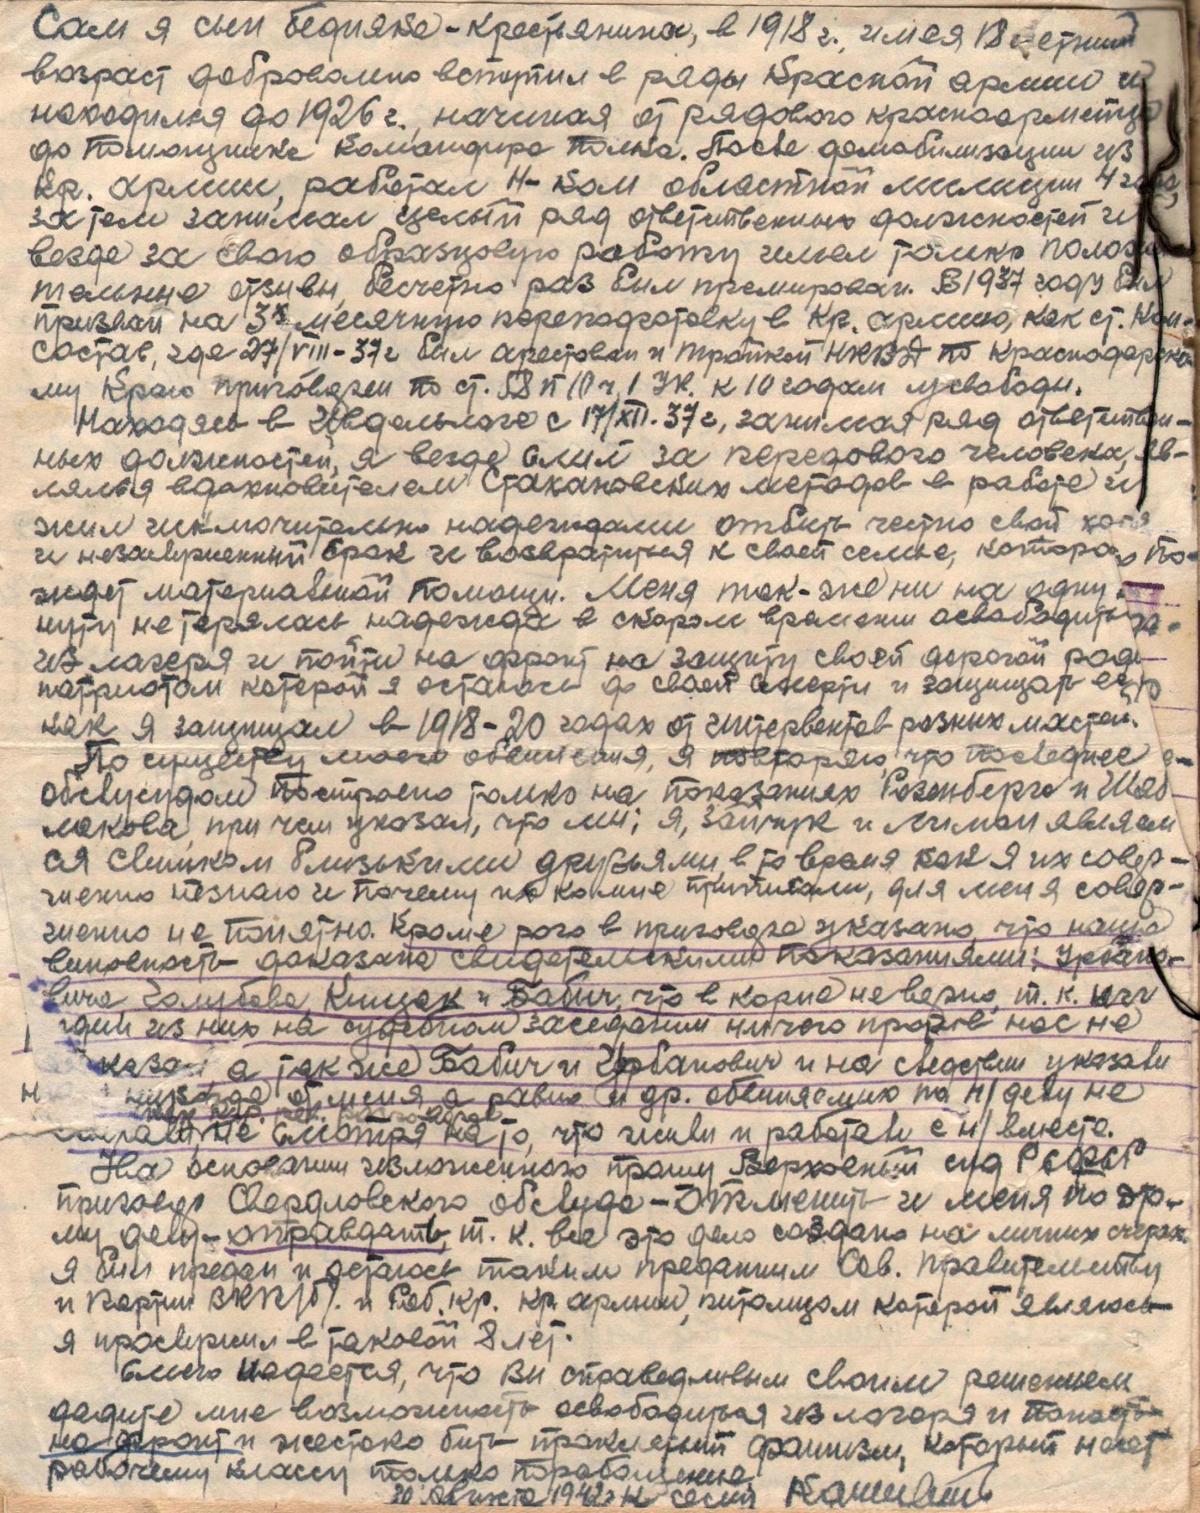 Сам я сын бедняка-крестьянина, в 1918 г., имея 18 летний
возраст добровольно вступил в ряды Красной армии и
находился до 1926 г., начиная от рядового красноармейца
до помощника командира полка. После демобилизации из
Кр. армии, работал Н-ком областной милиции 4 года,
затем занимал целый ряд ответственных должностей и
везде за свою образцовую работу имел только положи
тельные отзывы, бесчетно раз был премирован. В 1937 году был
призван на 3х месячную переподготовку в Кр. армию, как ст. Ком-
состав, где 27/VIII-37 г был арестован и тройкой НКВД по Краснодарско
му Краю приговорен по ст. 58 п 10 ч. 1 УК. к 10 годам л/свободы.
Находясь в Ивдельлаге с 17/XII.37 г, занимая ряд ответствен-
ных должностей, я везде слил за передового человека, яв-
лялся вдохновителем Стахановских методов в работе и
жил исключительно надеждами отбыть честно свой хотя
и незавершенный срок и возвратиться к своей семье, которая
ждет материальной помощи. Меня так-же ни на одну
нуту не терялась надежда в скором времени освободиться
из лагеря и пойти на фронт на защиту своей дорогой роди
патриотом которой я остаюсь до своей смерти и защищать ее
как я защищал в 1918-20 годах от интервентов разных мастей.
По существу моего обвинения, я повторяю, что последнее
облсудом построено только на показаниях Розенберга и Шаб
макова, при чем указал, что мы; я, Зайчик и Лиман являем
ся слишком близькими друзьями, в то время как я их совер-
шенно незнаю и почему их комне приписали, для меня совер-
шенно не понятно. Кроме того в приговоре указано, что наша
виновность доказана свидетельскими показаниями: Урбано-
вича Голубева, Кищак и Бабич, что в корне не верно, т. к. ни
один из них на судебном заседании ничего против нас не
казал, а так же Бабич и Урбанович и на следствии указали
обменя а равно и др. обвиняемых по н/делу не
не смотря на то, что жили и работали с н/вместе.
На основании изложенного прошу Верховный суд РСФСР
приговор Свердловского облсуда - Отменить и меня по это-
му делу - оправдать, т. к. все это дело создано на личных счетах.
я был предан и остаюсь таким преданным Сов. Правительству
и Партии ВКП/б/. и Раб. Кр. Кр. армии, питомцом которой являюсь
я прослужил в таковой 8 лет.
Смею надеется, что Вы справедливым своим решением
дадите мне возможность освободиться из лагеря и попасть
на фронт и жестоко бить проклятый фашизм, который несет
рабочему классу только порабощение
20 августа 1942 г К сему